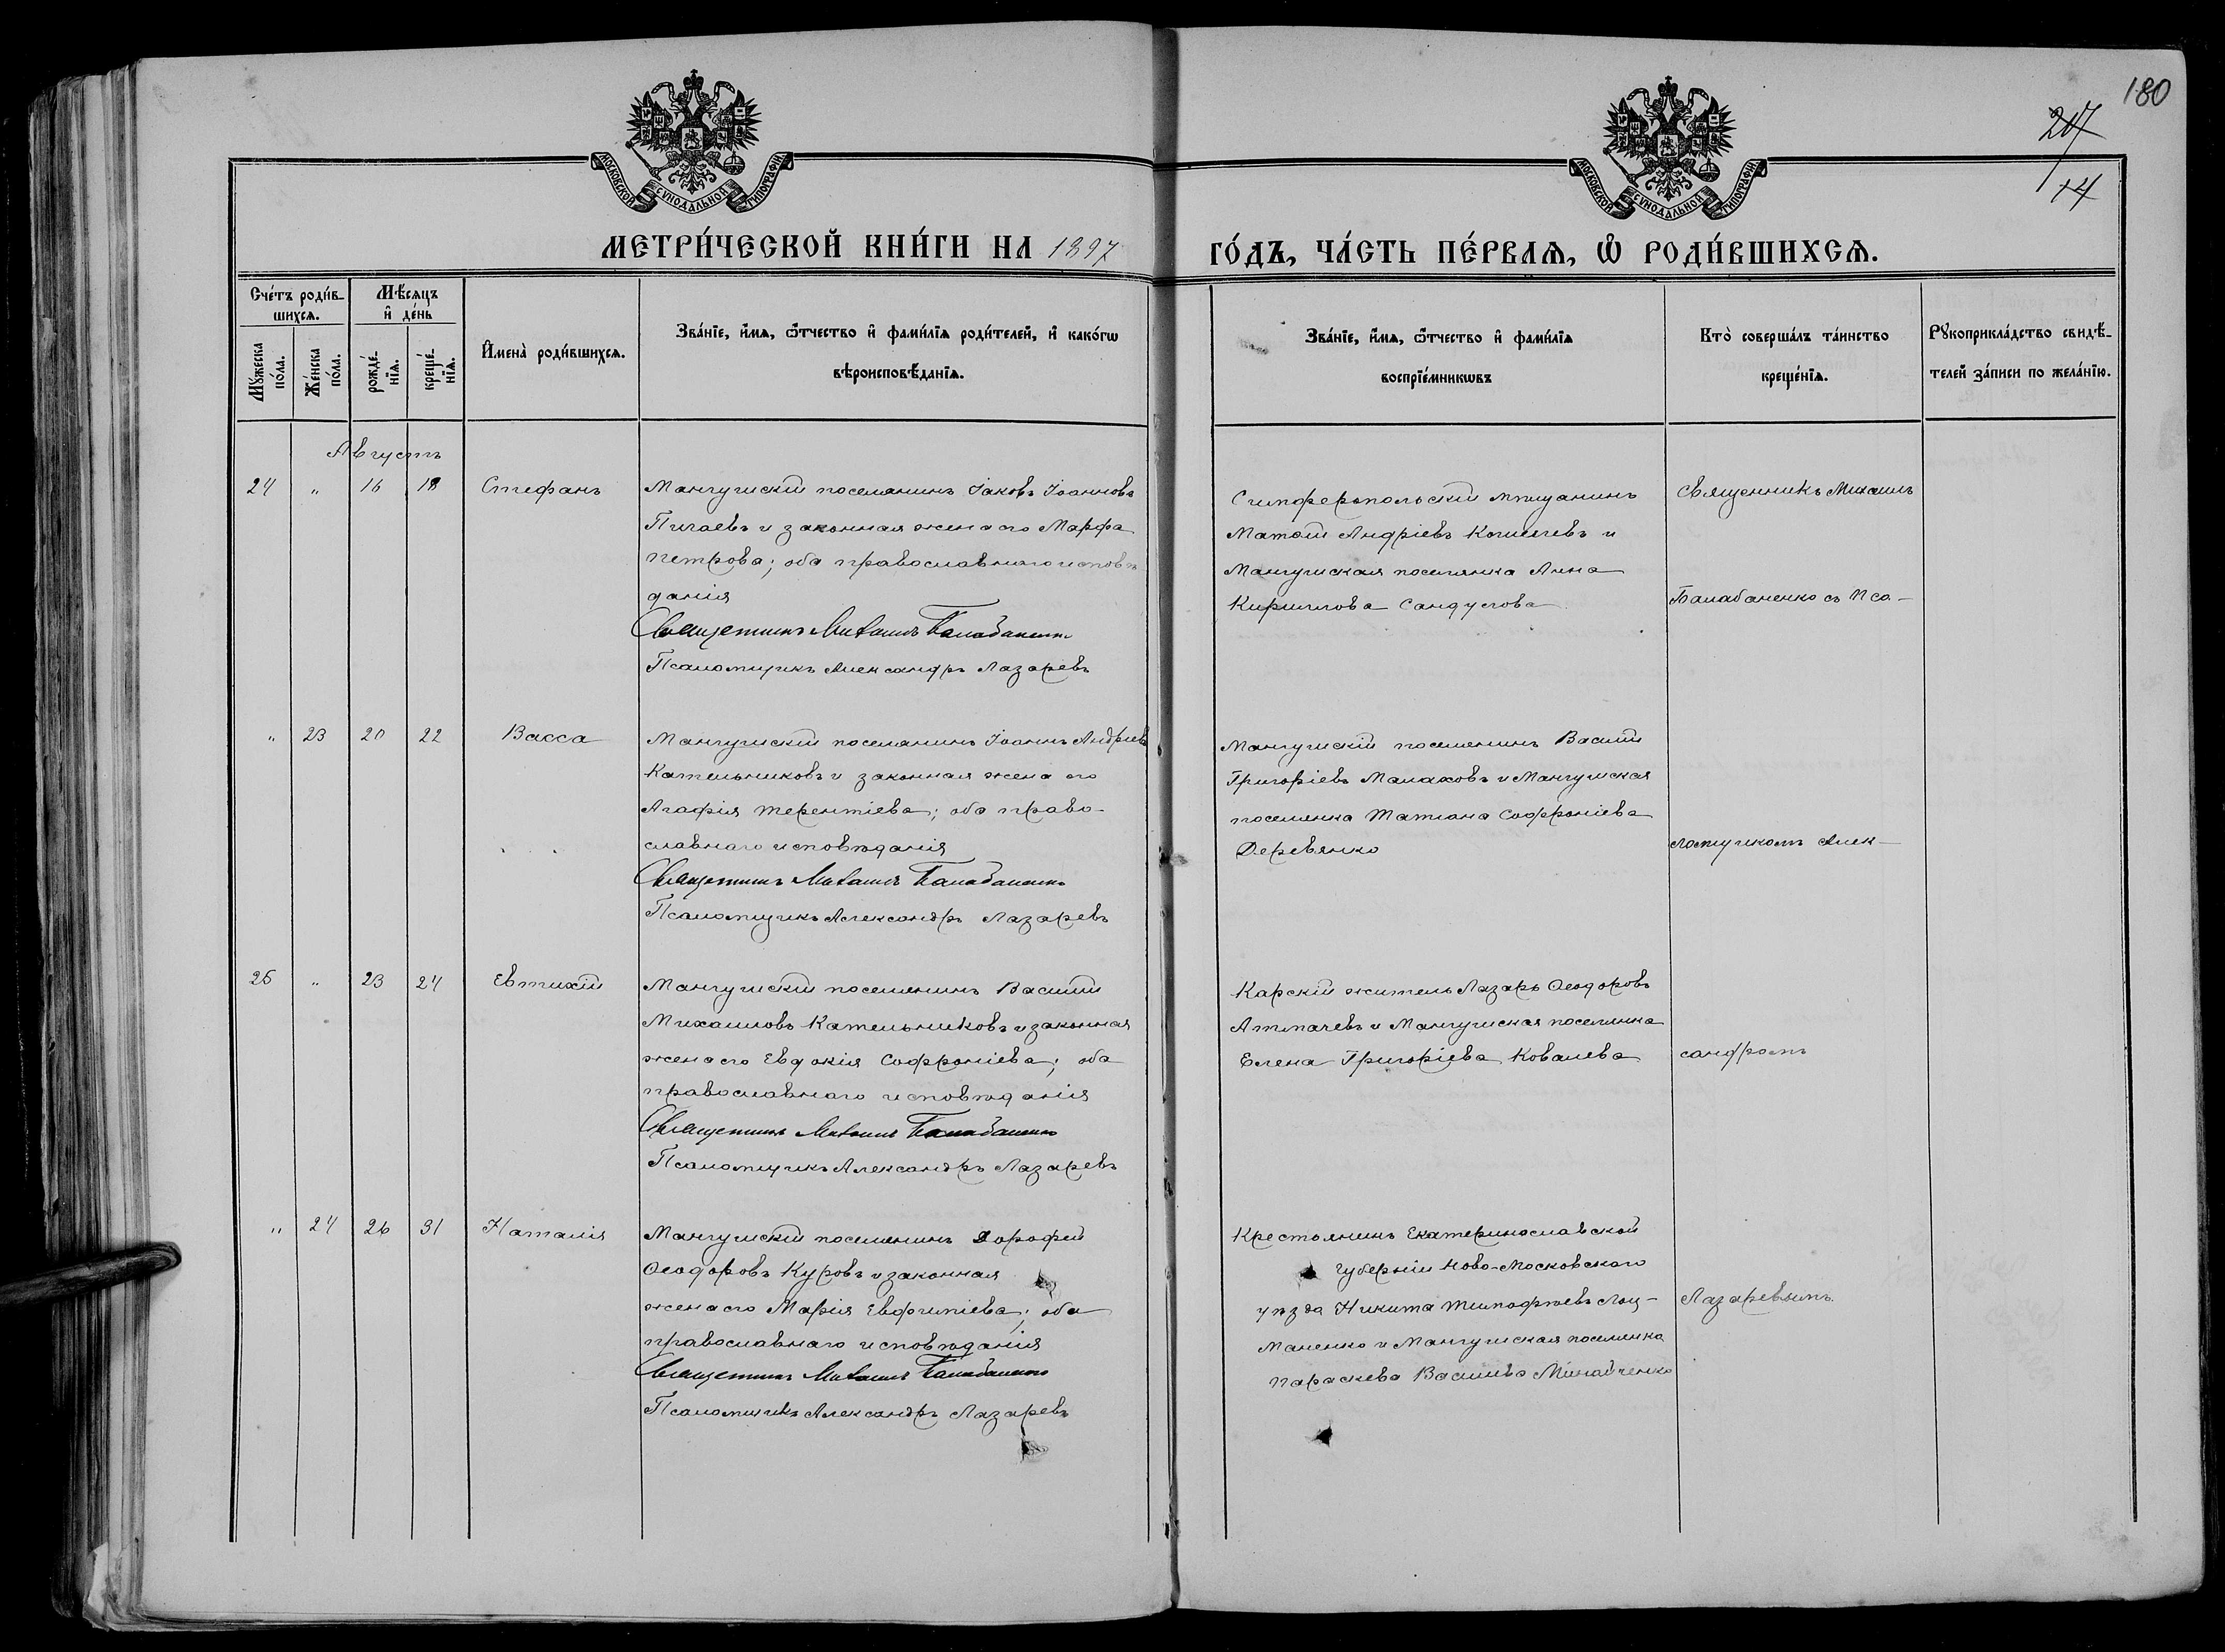 180
207
14
МОСКОВСКОЙ СУНОДАЛЬНОЙ ТИПОГРАФІИ
МОСКОВСКОЙ СУНОДАЛЬНОЙ ТИПОГРАФІИ
МЕТРИ́ЧЕСКОЙ КНИ́ГИ НА 1897 ГО́ДЪ, ЧА́СТЬ ПЕ́РВАѦ, Ѡ РОДИ́ВШИХСѦ.
Сче́тъ роди́в-
шихсѧ.
Мꙋжеска по́ла.
Же́нска по́ла.
Мѣ́сѧцъ
и҆ де́нь
рожде́-нїѧ.
креще́-нїѧ.
И҆мена̀ роди́вшихсѧ.
Зва́нїе, и҆́мѧ, ѻ҆́тчество и҆ фами́лїѧ роди́телей, и҆ како́гѡ
вѣроисповѣ́данїѧ.
Зва́нїе, и҆́мѧ, ѻ҆́тчество и҆ фами́лїѧ
воспрїе́мникѡвъ
Кто̀ соверша́лъ та́инство
креще́нїѧ.
Рꙋкоприкла́дство свидѣ́-
телей за́писи по жела́нїю.
Августъ
24 " 16 18 Стефанъ
Мангушскій поселянинъ Іаковъ Іоанновъ
Пичаевъ и законная жена его Марфа
Петрова; оба православнаго исповѣ
данія
Священникъ Михаилъ Балабаненко
Псаломщикъ Александръ Лазаревъ
Симферопольскій мѣщанинъ
Матѳій Андріевъ и
Мангушская поселянка Анна
Кириллова
Священникъ Михаилъ
Балабаненко съ Пса-
" 23 20 22 Васса
Мангушскій поселянинъ Іоаннъ Андріевъ
Кательниковъ и законная жена его
Агафія Терентіева; оба право-
славнаго исповѣданія
Священникъ Михаилъ Балабаненко
Псаломщикъ Александръ Лазаревъ
Мангушскій поселянинъ Василій
Григоріевъ Малаховъ и Мангушская
поселянка Татіана Софроніева
Деревянко
ломщикомъ Алек-
25 " 23 24 Евтихій
Мангушскій поселянинъ Василій
Михаиловъ Кательниковъ и законная
жена его Евдокія Софроніева; оба
православнаго исповѣданія
Священникъ Михаилъ Балабаненко
Псаломщикъ Александръ Лазаревъ
Карскій житель Лазарь Ѳеодоровъ
и Мангушская поселянка
Елена Григоріева Ковалева
сандромъ
" 24 26 31 Наталія
Мангушскій поселянинъ Дорофей
Ѳеодоровъ Куровъ и законная
жена его Марія; оба
православнаго исповѣданія
Священникъ Михаилъ Балабаненко
Псаломщикъ Александръ Лазаревъ
Крестьянинъ Екатеринославской
губерніи Ново-Московскаго
уѣзда Никита Тимофѣевъ Лоц-
маненко и Мангушская поселянка
Параскева Васильева Минайченко
Лазаревымъ